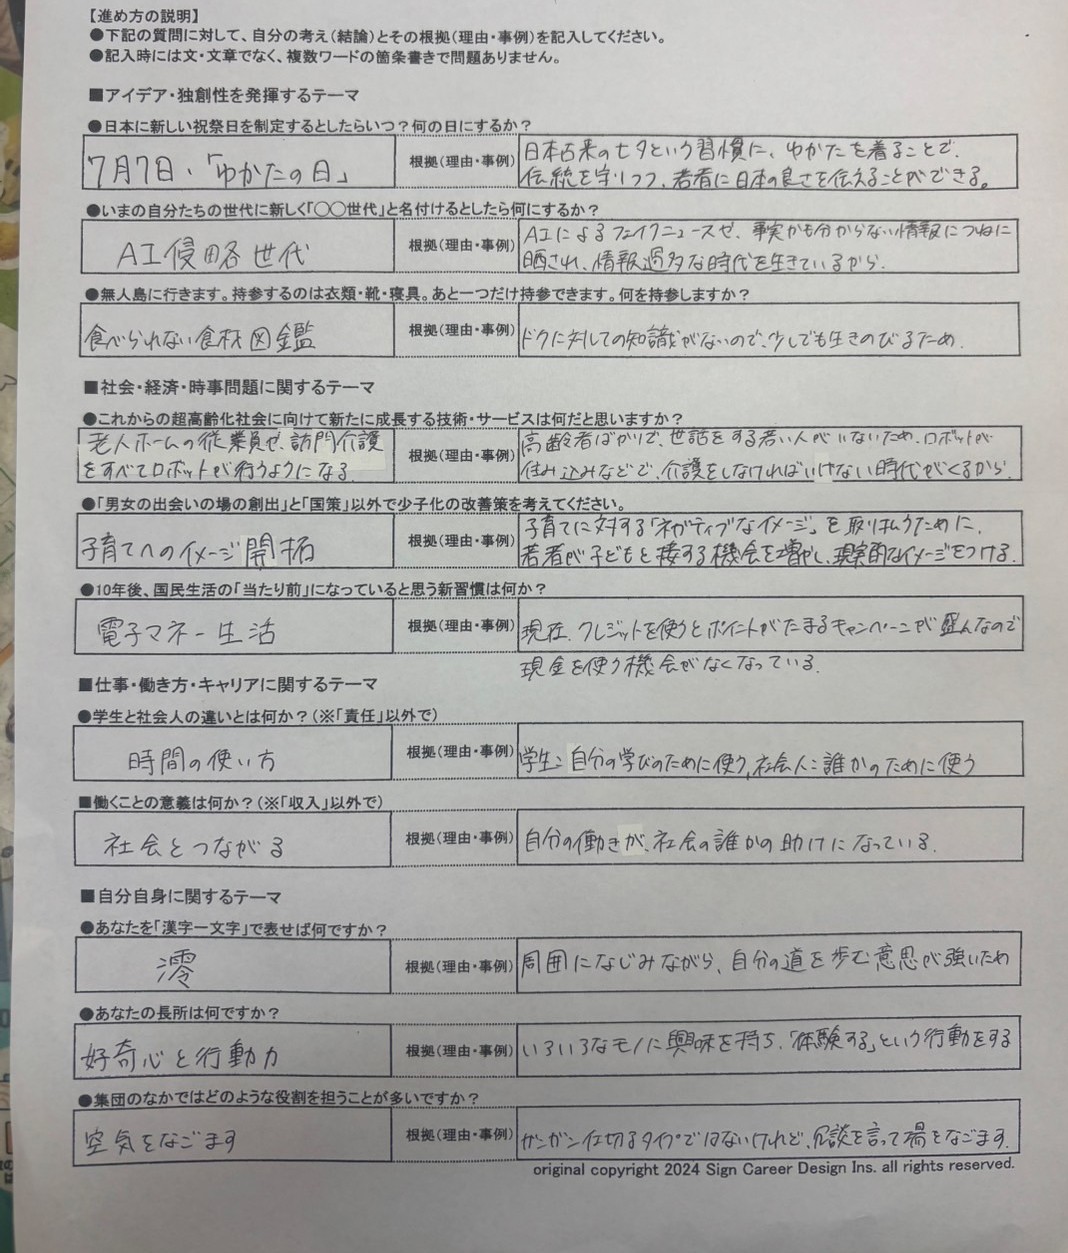 【進め方の説明】
●下記の質問に対して、自分の考え(結論)とその根拠(理由・事例)を記入してください。
●記入時には文・文章でなく、複数ワードの箇条書きで問題ありません。
■アイデア・独創性を発揮するテーマ
●日本に新しい祝祭日を制定するとしたらいつ?何の日にするか?
7月7日・「ゆかたの日」
根拠(理由・事例)
日本古来の七夕という習慣に、ゆかたを着ることで、
伝統を守りつつ、若者に日本の良さを伝えることができる。
●いまの自分たちの世代に新しく「〇〇世代」と名付けるとしたら何にするか?
AI侵略世代
根拠(理由・事例)
AIによるフェイクニュースで、事実かも分からない情報につねに
晒され、情報過多な時代を生きているから.
●無人島に行きます。持参するのは衣類・靴・寝具。あと一つだけ持参できます。何を持参しますか?
食べられない食材図鑑
根拠(理由・事例)
ドクに対しての知識がないので、少しでも生きのびるため.
■社会・経済・時事問題に関するテーマ
●これからの超高齢化社会に向けて新たに成長する技術・サービスは何だと思いますか?
老人ホームの従業員や、訪問介護
をすべてロボットが行うようになる.
根拠(理由・事例)
高齢者ばかりで、世話をする若い人がいないため、ロボットが
住み込みなどで、介護をしなければいけない時代がくるから.
●「男女の出会いの場の創出」と「国策」以外で少子化の改善策を考えてください。
子育てへのイメージ開拓
根拠(理由・事例)
子育てに対する「ネガティブなイメージ」を取りはらうために、
若者が子どもと接する機会を増やし、現実的なイメージをつける.
●10年後、国民生活の「当たり前」になっていると思う新習慣は何か?
電子マネー生活
根拠(理由・事例)
現在、クレジットを使うとポイントがたまるキャンペーンが盛んなので
現金を使う機会がなくなっている.
■仕事・働き方・キャリアに関するテーマ
●学生と社会人の違いとは何か?(※「責任」以外で)
時間の使い方
根拠(理由・事例)
学生:自分の学びのために使う,社会人:誰かのために使う
■働くことの意義は何か?(※「収入」以外で)
社会とつながる
根拠(理由・事例)
自分の働きが、社会の誰かの助けになっている.
■自分自身に関するテーマ
●あなたを「漢字一文字」で表せば何ですか?
澪
根拠(理由・事例)
周囲になじみながら、自分の道を歩む意思が強いため
●あなたの長所は何ですか?
好奇心と行動力
根拠(理由・事例)
いろいろなモノに興味を持ち、「体験する」という行動をする
●集団のなかではどのような役割を担うことが多いですか?
空気をなごます
根拠(理由・事例)
ガンガン仕切るタイプではないけれど、冗談を言って場をなごます.
original copyright 2024 Sign Career Design Ins. all rights reserved.